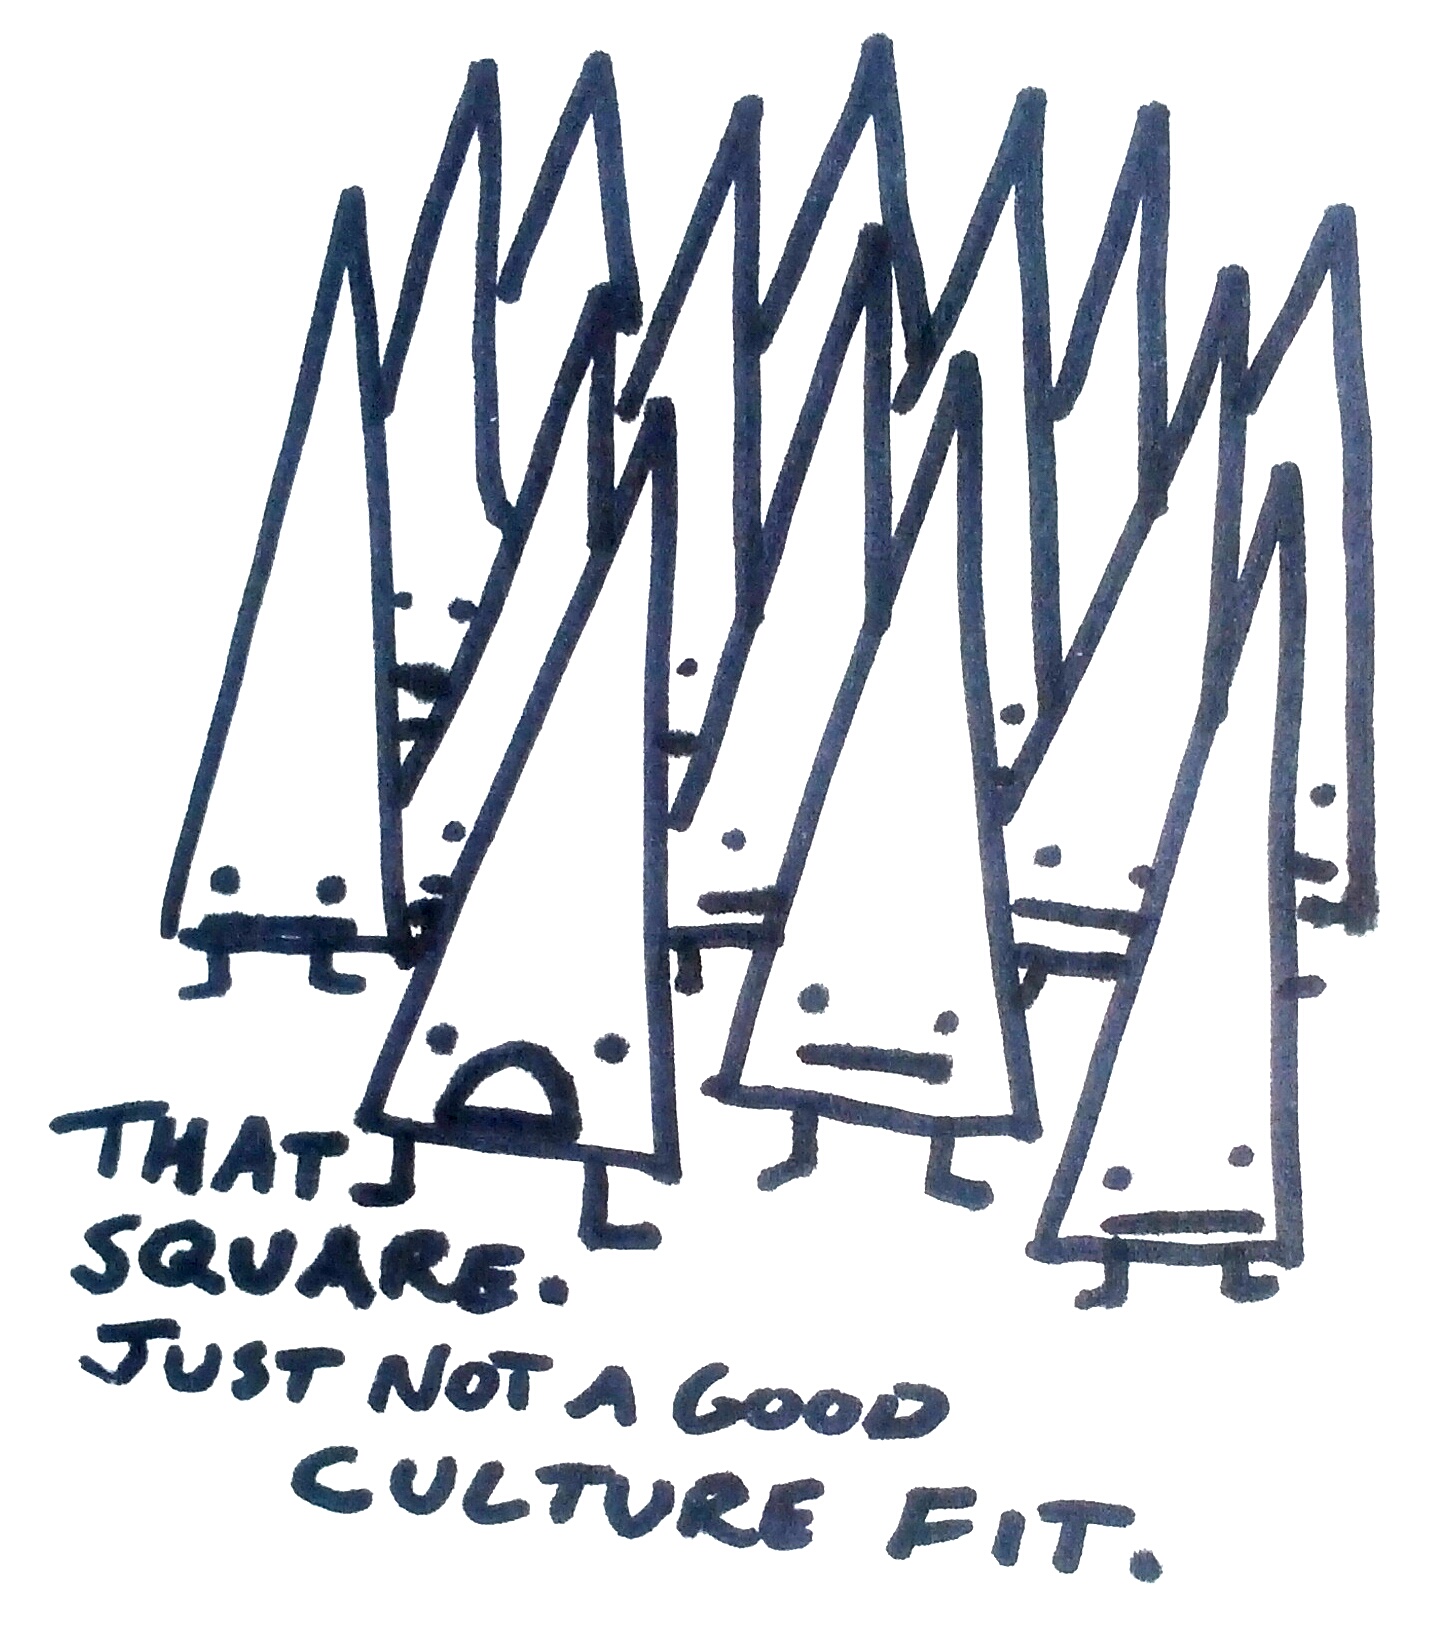 THAT
SQUARE.
JUST NOT A GOOD
CULTURE FIT.